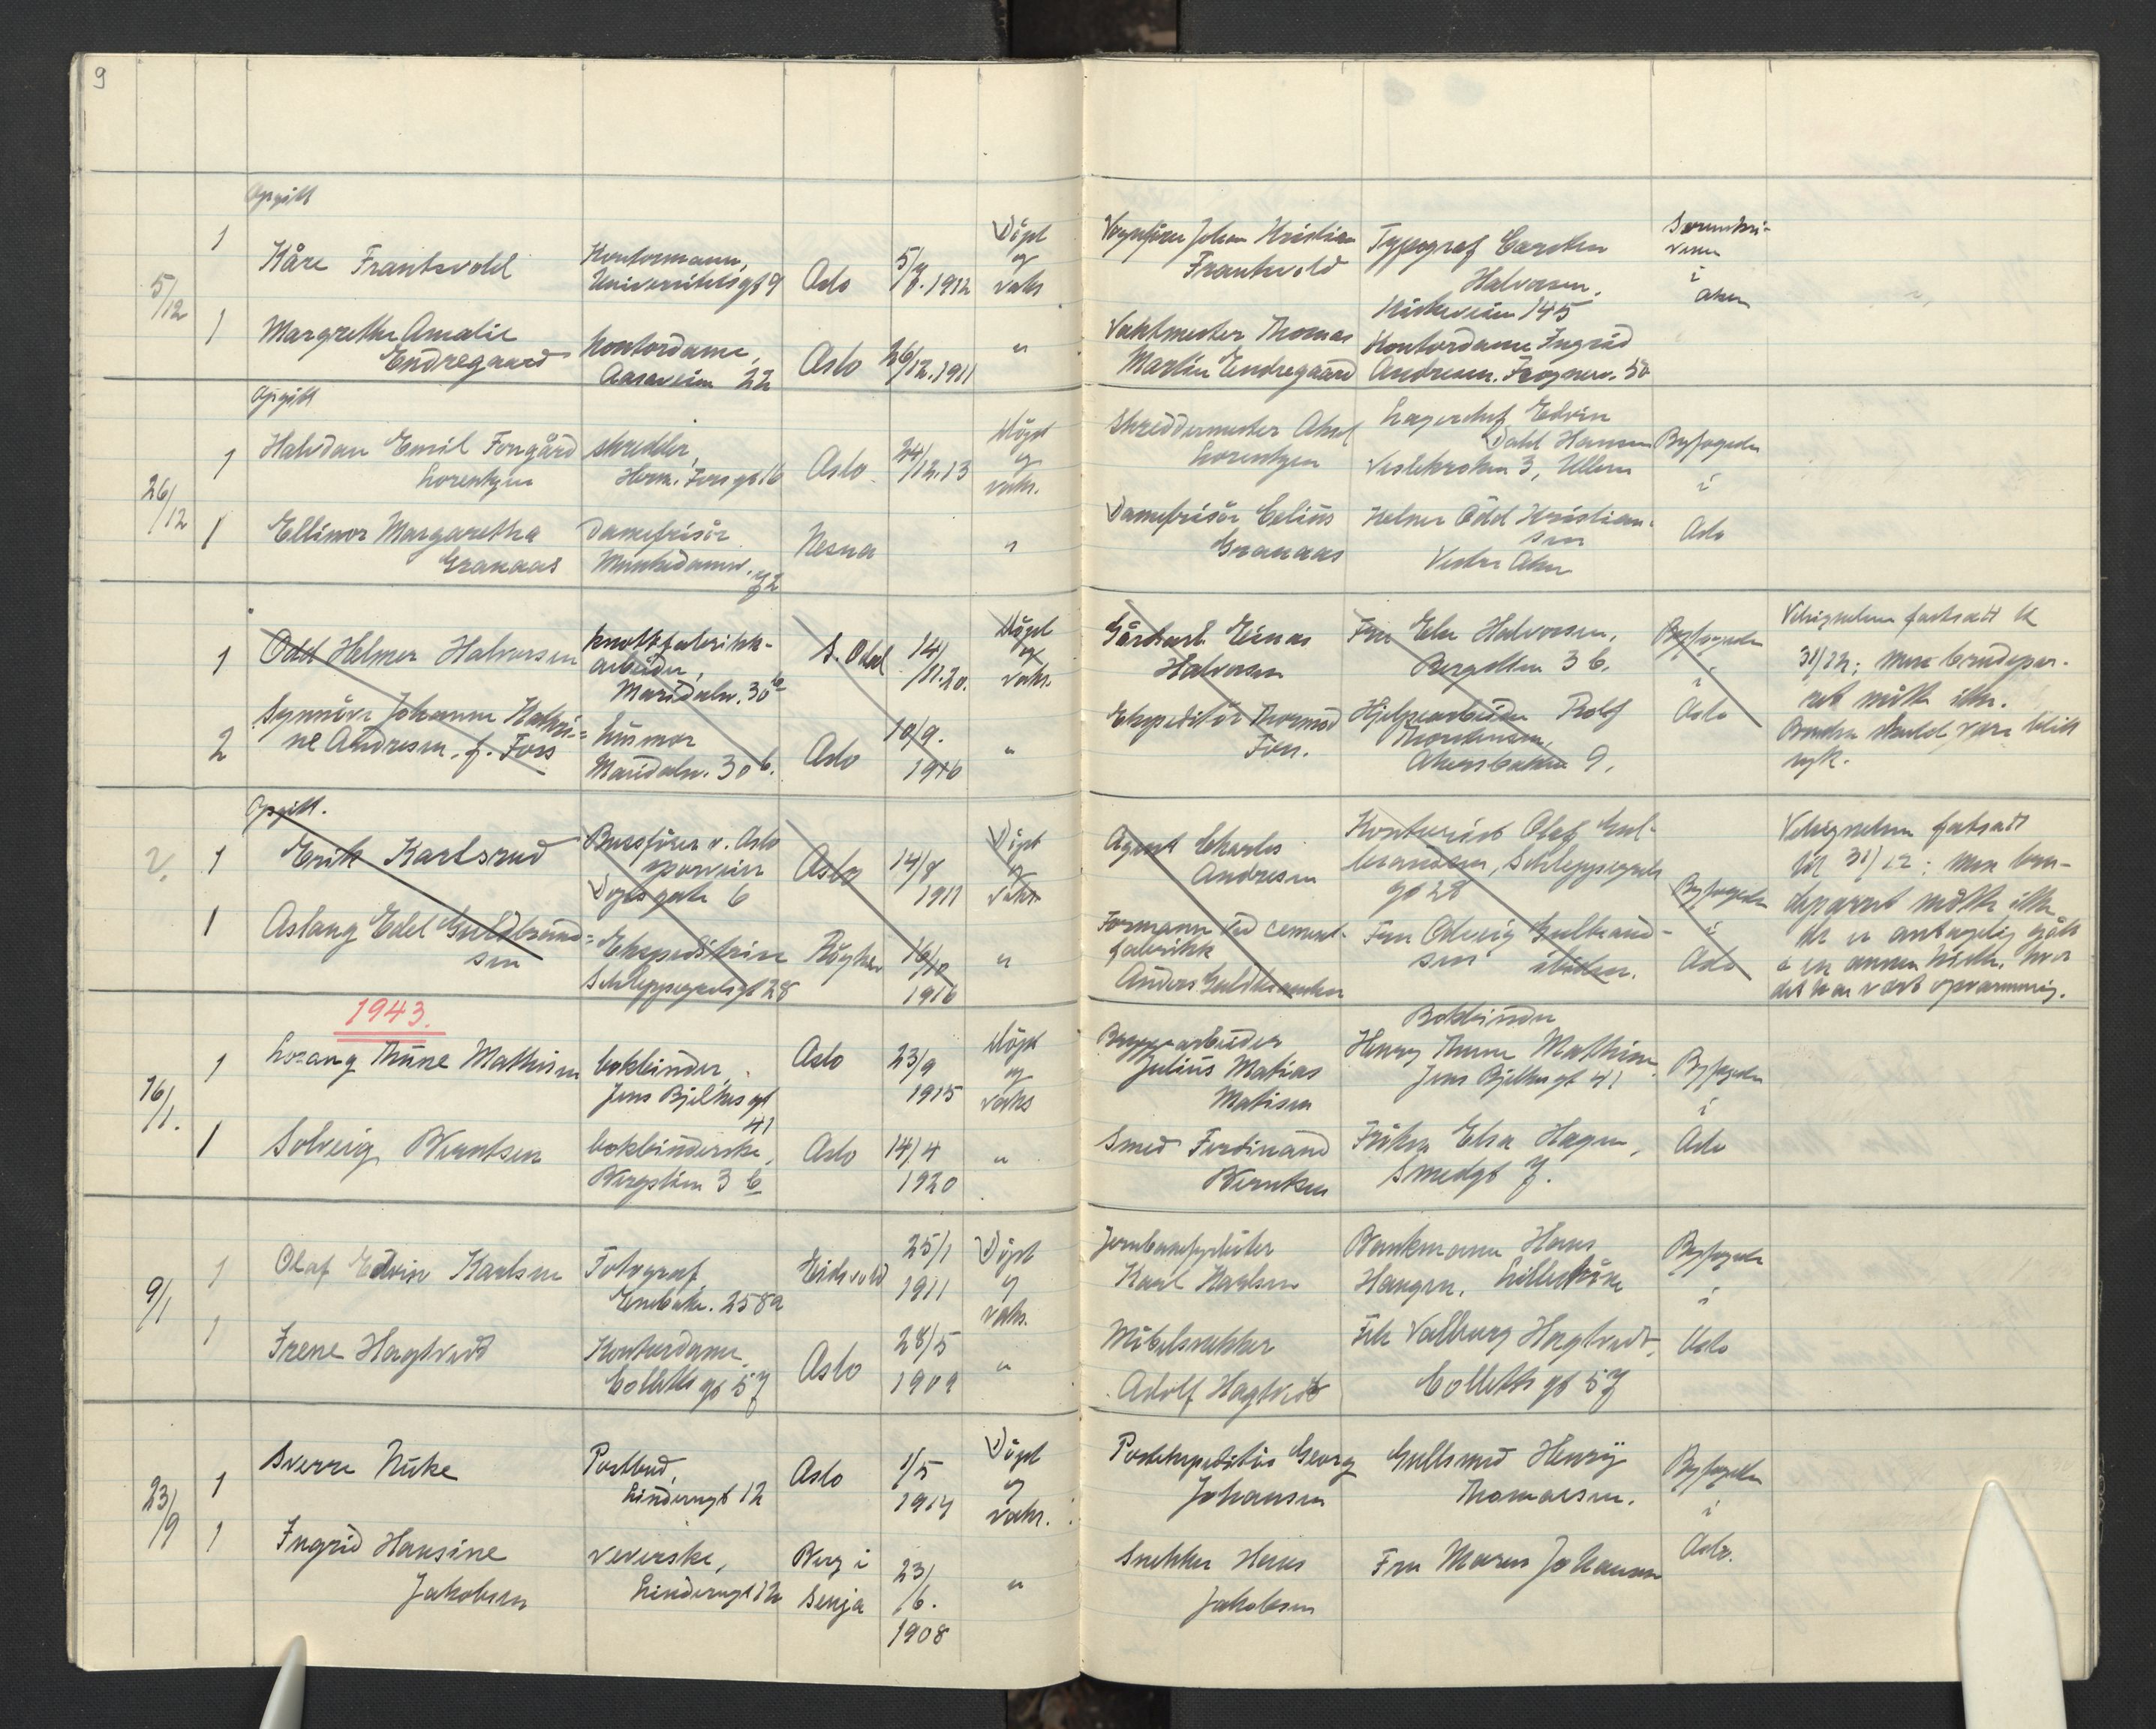 9
Opgitt
5/12
1
Kåre Frantsvold
Kontormann,
Universitetsgt 9
Oslo
5/8.1912
Döpt
og
vaks.
Vognfører Johan Kristian
Frantsvold
Typograf Carsten
Halvorsen.
Kirkeveien 145
Sorenskri-
veren
i
Aker
1
Margrethe Amalie
Endregaard
Kontordame,
Aaseveien 22
Oslo
26/12.1911
"
Vaktmester Thomas
Martin Endregaard
Kontordame Ingrid
Andresen. Frognerv. 50
Opgitt
26/12
1
Halvdan Emil Forgård
Lorentzen
skredder,
Herm. Foss gt 16
Oslo
24/12.13
Döpt
og
vaks.
Skreddermester Aksel
Lorentzen
Lagerchef Edvin
Dahl Hansen
Veslekroken 3, Ullern
Byfogden
i
Oslo
1
Ellinor Margaretha
Granaas
Damefrisör
Munkedamsv. 72
Nesna
"
Damefrisör Celius
Granaas
Helmer Odd Kristian-
sen
Vestre Aker
1
Odd Helmer Halvorsen
knottfabrikk-
arbeider,
Maridalsv. 30 b
S. Odal
14/11.20.
Döpt
og
vaks.
Gårdsarb. Einar
Halvorsen
Fru Elsa Halvorsen,
Bergslien 3 b.
Byfogden
i
Oslo
Velsignelsen fastsatt til
31/12; men brudepar-
ret møtte ikke.
Bruden skulde være blitt
syk.
2
Synnöve Johanne Kathri-
ne Andresen, f. Foss
husmor
Maridalsv. 30 b.
Oslo
10/9.
1916
"
Ekspeditör Thormod
Foss.
Hjelpearbeider Rolf
Thorstensen,
Akersbakken 9.
Opgitt.
1
Erik Karlsrud
Bussfører v. Oslo
sporveier
Vogts gate 6
Oslo
14/8
1911
Döpt
og
vaks
Agent Charles
Andresen
Kontorist Olaf Gul-
brandsen, Schleppegrels
gt 28
Byfogden
i
Oslo
Velsignelsen fastsatt
til 31/12; men bru-
deparret møtte ikke
de er antagelig gått
i en annen kirke, hvor
det har vært opvarming.
1
Aslaug Edel Guldbrand-
sen
Ekspeditrise
Schleppegrelsgt 28
Röyken
16/10
1916
"
Formann ved cement-
fabrikk
Anders Guldbrandsen
Fru Solveig Gulbrand-
sen
1943.
16/1.
1
Lorang Thune Mathisen
bokbinder,
Jens Bjelkes gt
41
Oslo
23/9
1915
Döpt
og
vaks
Bryggearbeider
Julius Matias
Matisen
Bokbinder
Henry Thune Mathisen
Jens Bjelkes gt 41
Byfogden
i
Oslo
1
Solveig Berntsen
bokbinderske,
Bergslien 3 b
Oslo
14/4
1920
"
Smed Ferdinand
Berntsen
Fröken Elsa Hagen,
Smedgt 7.
9/1
1
Olaf Edvin Karlsen
Fotograf,
Enebakv. 258a
Eidsvold
25/1
1911
Döpt
og
vaks.
Jernbanefyrbøter
Karl Karlsen
Bankmann Hans
Haugen, Lilleström
Byfogden
i
Oslo
1
Irene Hagtvedt
Kontordame
Colletts gt 57
Oslo
28/5
1909
"
Möbelsnekker
Adolf Hagtvedt
Frk Valborg Hagtvedt,
Colletts gt 57
23/9
1
Sverre Nuke
Postbud,
Linderngt 12
Oslo
1/5
1914
Döpt
og
vaks.
Postekspeditör Georg
Johansen
Gullsmed Henry
Thomassen.
Byfogden
i
Oslo.
1
Ingrid Hansine
Jakobsen
veverske,
Linderngt 12
Berg i
Senja
23/6.
1908
"
Snekker Hans
Jakobsen
Fru Maren Johansen